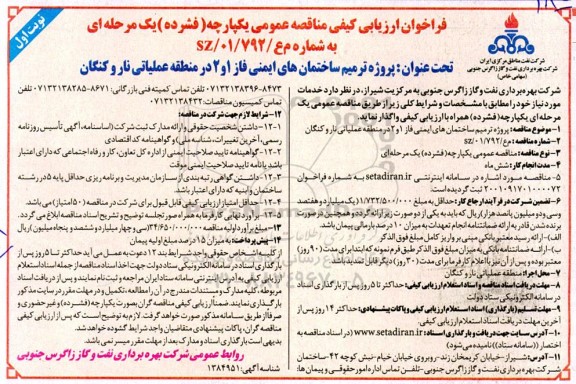 نوبت اول
فراخوان ارزیابی کیفی مناقصه عمومی یکپارچه (فشرده) یک مرحله ای
به شماره م ع/SZ/۰۱/۷۹۲
تحت عنوان: پروژه ترمیم ساختمان های ایمنی فاز ۱و۲ در منطقه عملیاتی نار و کنگان
شرکت نفت مناطق مرکزی ایران
شرکت بهره برداری نفت و گاز زاگرس جنوبی
(سهامی خاص)
شرکت بهره برداری نفت و گاز زاگرس جنوبی به مرکزیت شیراز، در نظر دارد خدمات
مورد نیاز خود را مطابق با مشخصات و شرایط کلی زیر از طریق مناقصه عمومی یک
مرحله ای یکپارچه (فشرده) همراه با ارزیابی کیفی واگذار نماید.
۱-موضوع مناقصه: پروژه ترمیم ساختمان های ایمنی فاز ۱و۲ در منطقه عملیاتی نار و کنگان
۲-شماره مناقصه: م ع/SZ/۰۱/۷۹۲
۳-نوع مناقصه: مناقصه عمومی یکپارچه (فشرده) یک مرحله ای
۴-مدت انجام کار: شش ماه
۵-مناقصه مورد اشاره در سامانه اینترنتی setadiran.ir به شماره فراخوان
۲۰۰۱۰۹۱۷۰۱۰۰۰۰۷۲ ثبت گردیده است.
۶-تضمین شرکت در فرآیند ارجاع کار: حداقل به مبلغ ۱/۷۳۲/۵۰۰/۰۰۰ (یک میلیارد و هفتصد
وسی و دو میلیون و پانصد هزار) ریال که باید به یکی از دو صورت زیر ارائه گردد و همچنین در صورت
برنده شدن قادر به ارائه ضمانتنامه انجام تعهدات به میزان ۱۰ درصد بارمانی پیمان باشد.
الف)-ارائه رسید معتبر بانکی مبنی بر واریز کامل مبلغ فوق الذکر
ب)-ارائه ضمانتنامه بانکی به میزان مبلغ فوق الذکر طبق فرم نمونه که ابتدا برای مدت (۹۰ روز)
معتبر بوده و پس از آن نیز با اعلام کارفرما برای مدت (۳۰ روز) دیگر قابل تمدید باشد.
۷-محل اجرا: منطقه عملیاتی نار و کنگان
۸-مهلت دریافت اسناد مناقصه و اسناد استعلام ارزیابی کیفی: حداکثر تا ۵ روز پس از بارگذاری اسناد
در سامانه الکترونیکی ستاد دولت
۹-مهلت تسلیم (بارگذاری) اسناد استعلام ارزیابی کیفی و پاکات پیشنهادی: حداکثر ۱۴ روز پس از
آخرین مهلت دریافت اسناد استعلام ارزیابی کیفی.
۱۰-آدرس سایت جهت دریافت و بارگذاری اسناد: www.setadiran.ir (در اسناد مناقصه به
اختصار ((سامانه ستاد)) نامیده می شود)
۱۱-آدرس: شیراز-خیابان کریمخان زند-روبروی خیابان خیام-نبش کوچه ۴۲-ساختمان
شرکت بهره برداری نفت و گاز زاگرس جنوبی-تلفن تماس اداره امور حقوقی و پیمان ها:
۰۷۱۳۲۱۳۸۳۹۶-۸۴۷۳ تلفن تماس کمیته فنی بازرگانی: ۸۶۷۱-۰۷۱۳۲۱۳۸۲۸۵
تماس کمیسیون مناقصات: ۰۷۱۳۲۱۳۸۴۳۲
۱۲-شرایط لازم جهت شرکت در مناقصه:
۱-۱۲-داشتن شخصیت حقوقی و ارائه مدارک ثبت شرکت (اساسنامه، آگهی تأسیس روزنامه
رسمی، آخرین تغییرات، شناسه ملی) و گواهینامه کد اقتصادی
۲-۱۲-گواهینامه تایید صلاحیت ایمنی از اداره کل تعاون، کار و رفاه اجتماعی که دارای اعتبار
باشد یا نامه تایید صلاحیت ایمنی موقت
۳-۱۲-داشتن گواهی رتبه بندی از سازمان مدیریت و برنامه ریزی حداقل پایه ۵ در رشته
ساختمان و ابنیه که دارای اعتبار باشد.
۴-۱۲-حداقل امتیاز ارزیابی کیفی قابل قبول برای شرکت در مناقصه (۵۰ امتیاز) می باشد.
۵-۱۲-برآورد نهایی کارفرما به همراه صورتجلسه توضیح و تشریح اسناد مناقصه ابلاغ می گردد.
۱۳-مبلغ برآورد اولیه مناقصه: ۳۴/۶۵۰/۰۰۰/۰۰۰ (سی و چهار میلیارد و ششصد و پنجاه میلیون) ریال
۱۴-پیش پرداخت: به میزان ۱۵ درصد مبلغ اولیه پیمان
از کلیه اشخاص حقوقی واجد شرایط بند ۱۲ دعوت به عمل می آید حداکثر تا ۵ روز پس از
بارگذاری اسناد در سامانه الکترونیکی ستاد دولت جهت اخذ اسناد مناقصه از جمله اسناد استعلام
ارزیابی کیفی به آدرس اینترنتی سامانه ستاد ایران مراجعه و ثبت نام نمایند و پس از دریافت اسناد
مربوطه، کلیه مدارک و مستندات مندرج در آن را مطالعه، تکمیل و در مهلت مقرر در سایت مذکور
بارگذاری نمایند. ضمناً ارزیابی کیفی مناقصه گران بصورت یکپارچه (فشرده) و غیر حضوری و
صرفاً از طریق سامانه مذکور صورت خواهد گرفت. لازم به توضیح است که پس از ارزیابی کیفی
مناقصه گران، پاکات پیشنهادی متقاضیان واجد شرایط گشوده خواهد شد.
به بارگذاری اسناد و مدارک بعد از مهلت مقرر منعی نمی باشد.
شناسه آگهی: ۱۳۸۴۹۵۱
روابط عمومی شرکت بهره برداری نفت و گاز زاگرس جنوبی